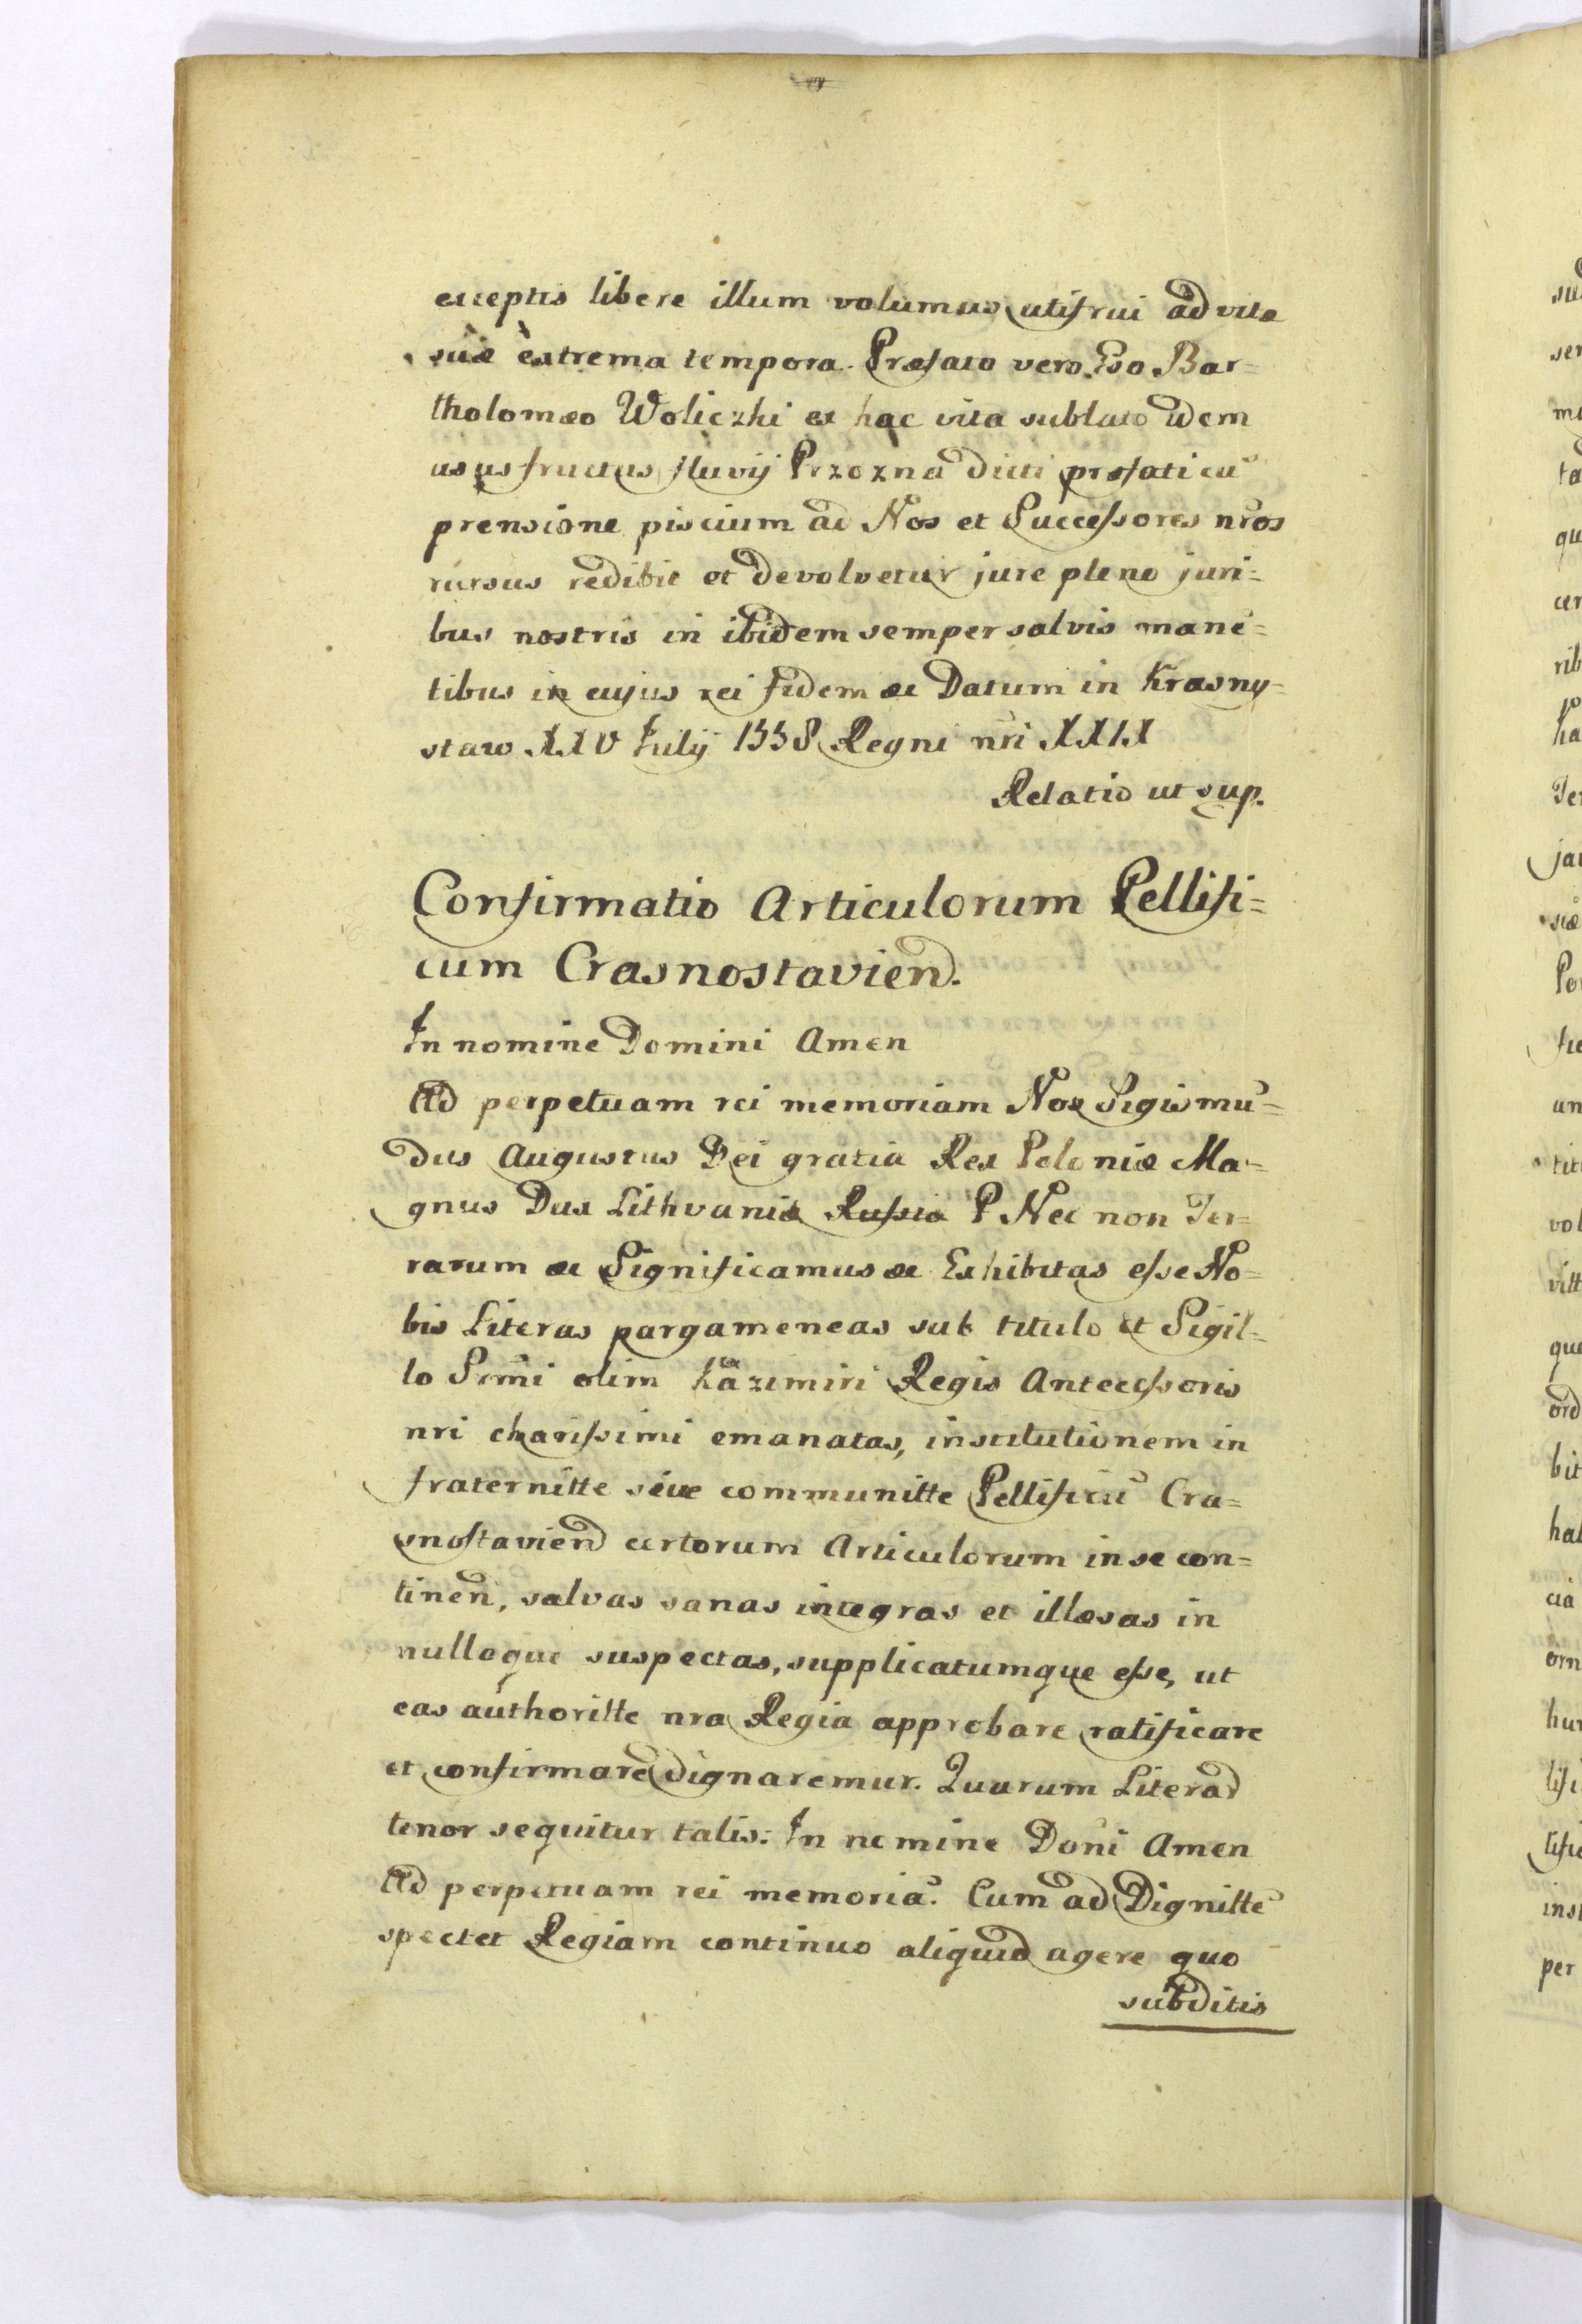 exceptis libere illum volumus utifrui ad vitæ
suæ extrema tempora. Præfato vero Eso Bar=
tholomæo Woliczki ex hac vita sublato idem
ususfructus fluvij Przozna dicti præfati cū
prensione piscium ad Nos et Successores nr̃os
rursus redibit et devolvetur jure pleno juri=
bus nostris in ibidem semper salvis manē=
tibus in cujus rei fidem &c Datum in Krasny=
staw XXV Julij 1558 Regni nr̃i XXIX
Relatio ut sup.
Confirmatio Articulorum Pellifi=
cum Crasnostaviend.
In nomine Domini Amen
Ad perpetuam rei memoriam Nos Sigismū=
dus Augustus Dei gratia Rex Poloniæ Ma=
gnus Dux Lithvaniæ Russiæ P Nec non Ter=
rarum &c Significamus &c Exhibitas esse No=
bis Literas pargameneas sub titulo et Sigil=
lo Srm̃i olim Kazimiri Regis Antecessoris
nri charissimi emanatas, institutionem in
fraternitte seue communitte Pellificū Cra=
snostaviend certorum Articulorum in se con=
tinen̄, salvas sanas integras et illæsas in
nulloque suspectas, supplicatumque esse, ut
eas authoritte nra Regia approbare ratificare
et confirmare dignaremur. Quarum Literar
tenor sequitur talis: In nomine Dōni Amen
Ad perpetuam rei memoriā. Cum ad Dignittē
spectet Regiam continuo aliquid agere quo
subditis